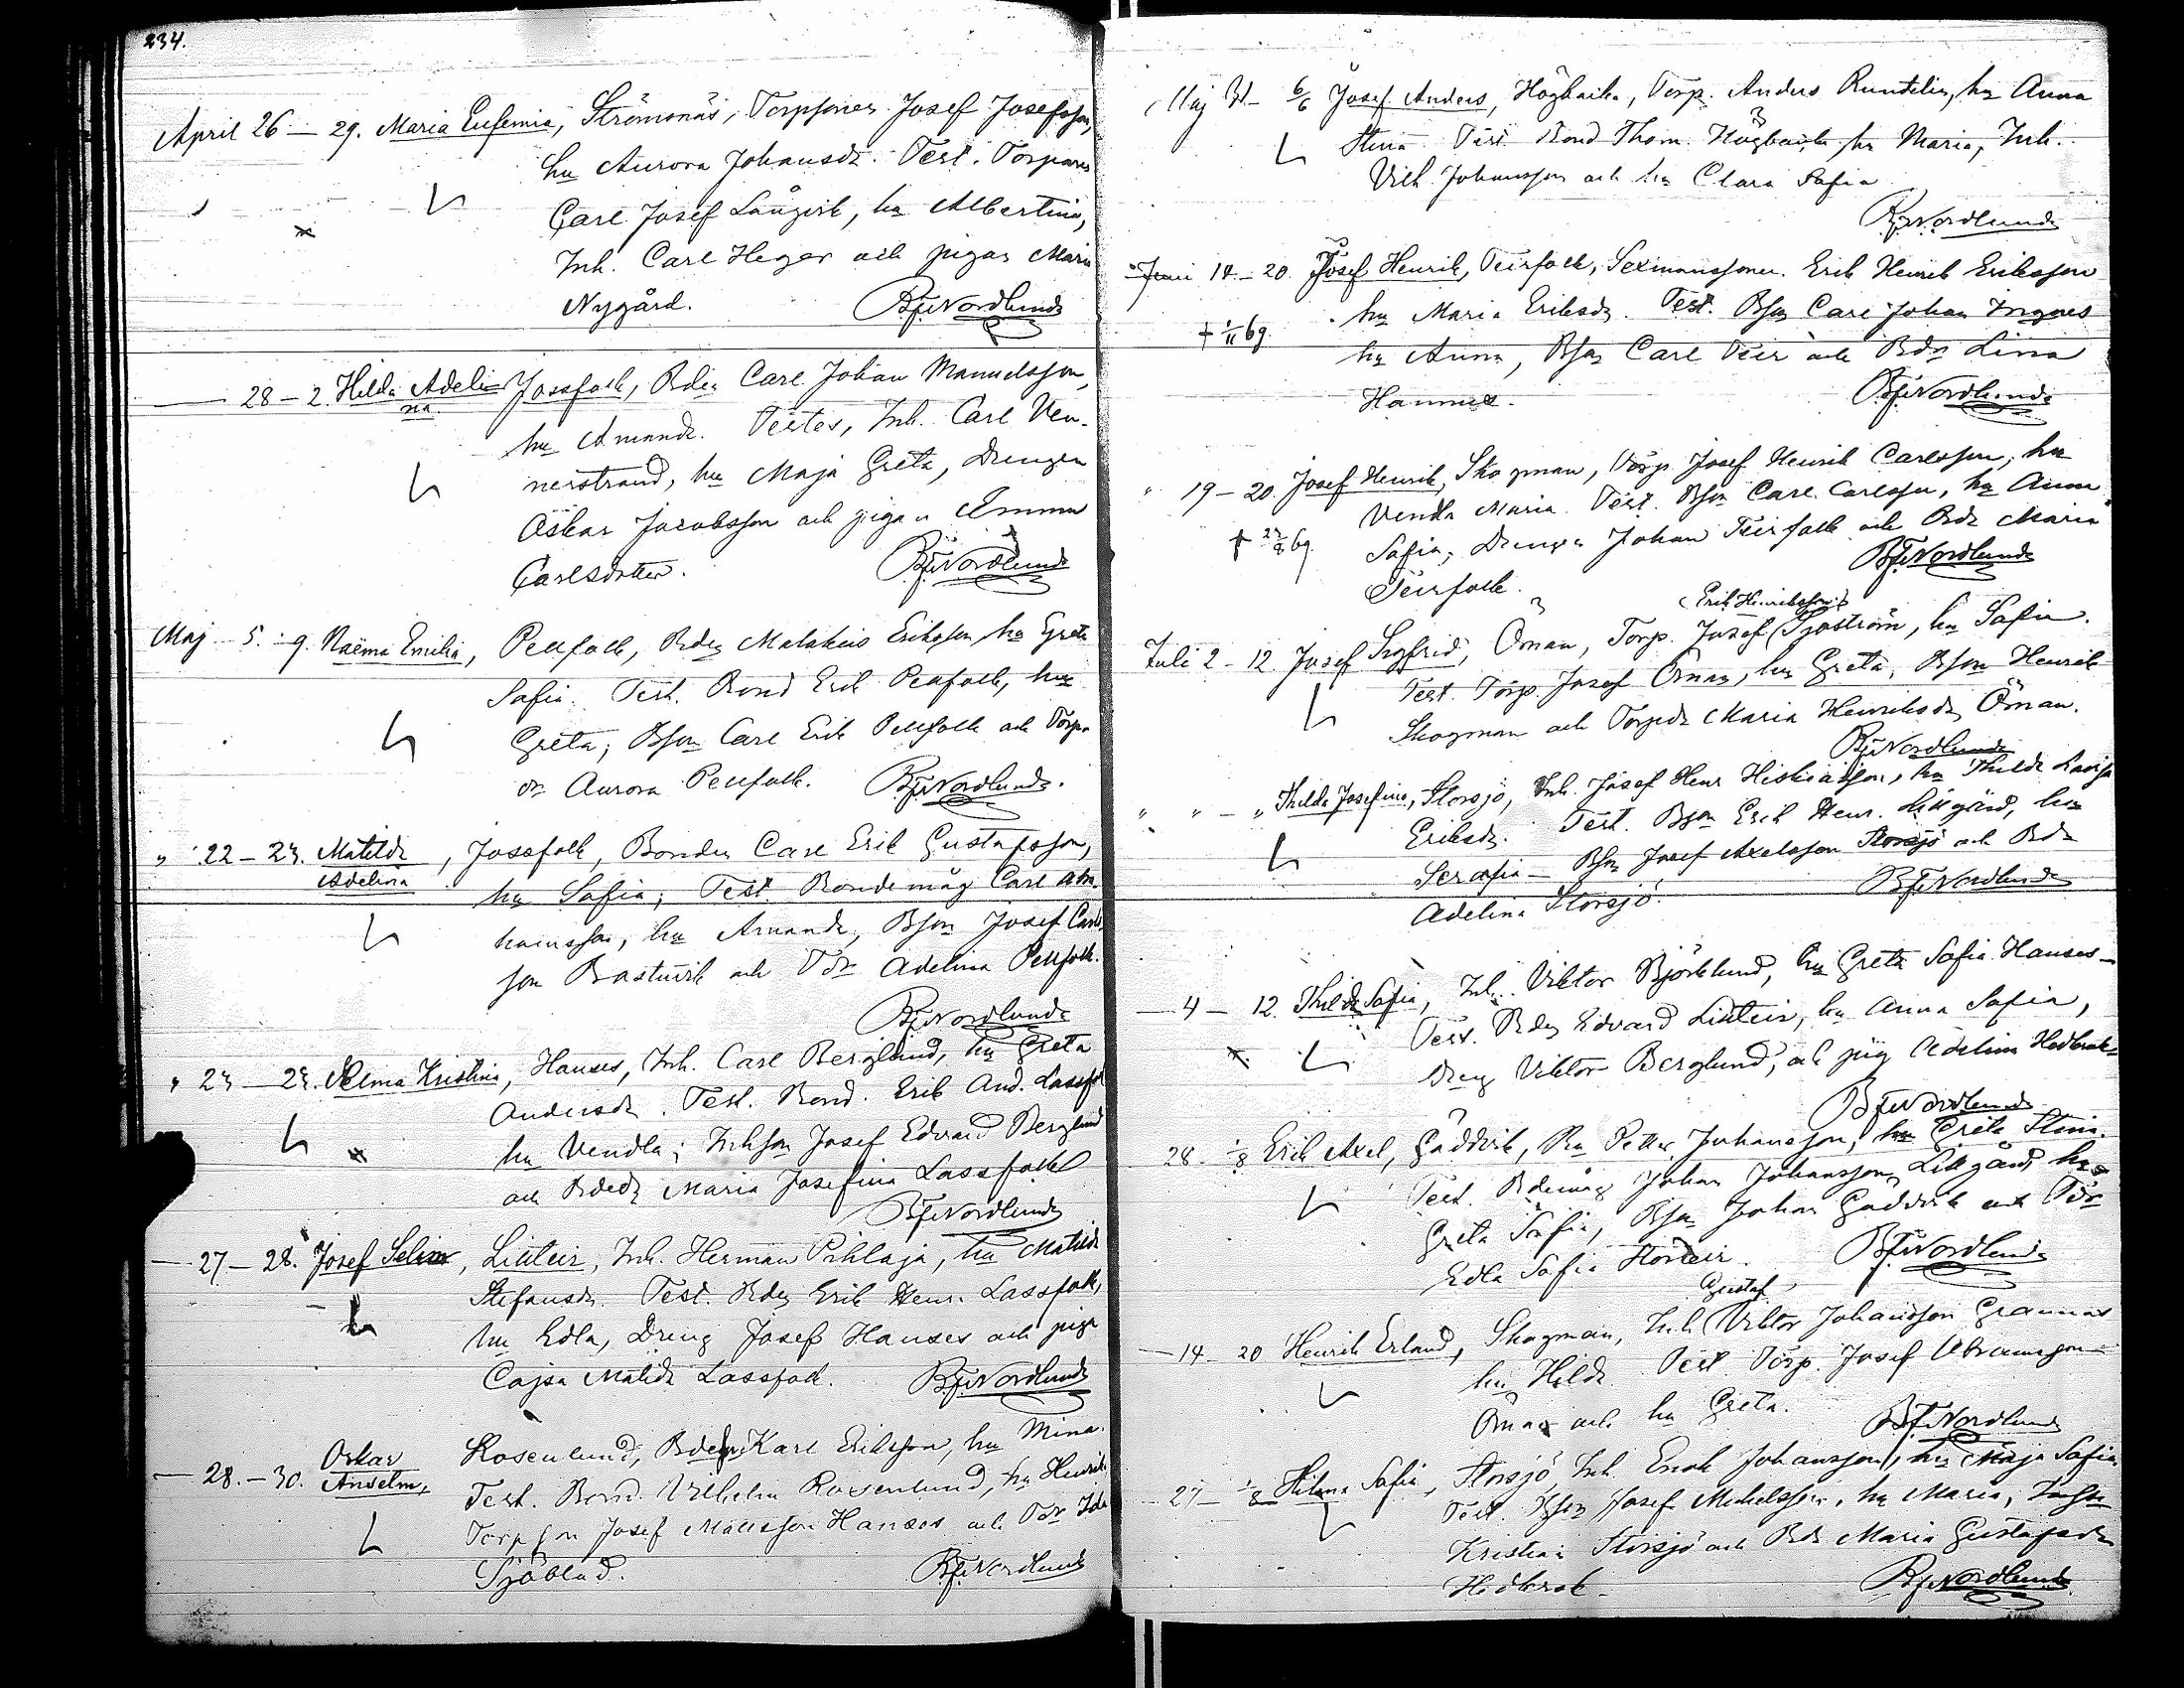 234.
April 26 – 29. Maria Eufemia, Strömsnäs, Torpsonen Josef Josefsson,
hu Aurora Johansdr. Test. Torparen
Carl Josef Långvik, hu Albertina,
Inh. Carl Heger och pigan Maria
Nygård. Nordlund
28 – 2. Hilda Adeli- Jossfolk, Bden Carl Johan Manuelsson,
na.
hu Amanda. Testes, Inh. Carl Ven-
nerstrand, hu Maja Greta, Drengen
Oskar Jacobsson och pigan Emma
Carlsdotter. Nordlund
Maj 5. – 9. Naëma Emilia, Pellfolk, Bden Malakias Eriksson hu Greta
Safia. Test. Bond Erik Pellfolk, hu
Greta, Bson Carl Erik Pellfolk och Torp.
dr Aurora Pellfolk. Nordlund.
" 22 – 23. Matilda, Jossfolk, Bonden Carl Erik Gustafsson,
Adelina
hu Safia; Test. Bondemåg Carl Abra-
hamsson, hu Amanda, Bson Josef Carls
son Bastuvik och Tdr Adelina Pellfolk.
Nordlund
" 23 – 23. Selma Kristina, Hanses, Inh. Carl Berglund, hu Greta
Andersdr. Test. Bond. Erik And. Lassfolk
hu Vendla; Inhson Josef Edvard Berglund
och Bdedr Maria Josefina Lassfolk
Nordlund
– 27 – 28. Josef Selim, Lillteir, Inh. Herman Pihlaja, hu Matilda
Stefansdr. Test. Bden Erik Henr. Lassfolk,
hu Edla, Dreng Josef Hanses och piga
Cajsa Matilda Lassfolk. Nordlund
– 28. – 30. Oskar Rosenlund, Bdeson Karl Eriksson, hu Mina.
Anselm,
Test. Bond. Vilhelm Rosenlund, hu Henrika
Torpson Josef Mattsson Hanses och Tdr Ida
Sjöblad. Nordlund
Maj 31 – 6/6 Josef Anders, Högbacka, Torp. Anders Rundelin, hu Anna
Stina Test Bond Thom. Högbacka hu Maria, Inh.
Vilh. Johansson och hu Clara Safia
Nordlund
Juni 14 – 20. Josef Henrik, Teirfolk, Sexmanssonen Erik Henrik Eriksson
hu Maria Eriksdr. Test. Bson Carl Johan Ingves
† 1/11 69. hu Anna, Bson Carl Teir och Bdr Lina
Nordlund
" 19 – 20. Josef Henrik, Skogman, Torp. Josef Henrik Carlsson, hu
Vendla Maria. Test. Bson Carl Carlsson, hu Anna
† 69. Safia, Drengen Johan Teirfolk och Bdr Maria
Teirfolk. Nordlund
(Erik Henriksson)
Juli 2 – 12. Josef Sigfrid, Öman, Torp. Josef Sjöström, hu Safia.
Test. Torp. Josef Öman, hu Greta, Bson Henrik
Skogman och Torpdr Maria Henriksdr Öman.
Nordlund
" " – " Thilda Josefina, Storsjö, Inh. Josef Henr Hiskiasson, hu Thilda Lovisa
Eriksdr. Test. Bson Erik Henr. Lillgård, hu
Serafia – Bson Josef Axelsson Storsjö och Bdr
Adelina Storsjö. Nordlund
– 4 – 12. Thilda Safia, Inh. Viktor Björklund, hu Greta Safia Hanses –
Test. Bden Edvard Lillteir, hu Anna Safia,
Dreng Viktor Berglund, och pig Adelina
Nordlund
28. 1/8 Erik Axel, Gäddvik, Petter Johansson, hu Greta Stina.
Test. Bdemåg Johan Johansson Lillgård, hu
Greta Safia, Bson Johan Gäddvik och Tdr
Edla Safia Storteir. Nordlund
Gustaf
– 14 – 20 Henrik Erland, Skogman, Inh. Viktor Johansson Grannas
hu Hilda Test. Torp. Josef Abramsson
Öman och hu Greta. Nordlund
– 27 – 1/8 Hilma Safia, Storsjö, Inh. Enok Johansson, hu Maja Safia.
Test. Bson Josef Mickelsson, hu Maria,
Kristian Storsjö och Bdr Maria Gustafsdr
Nordlund